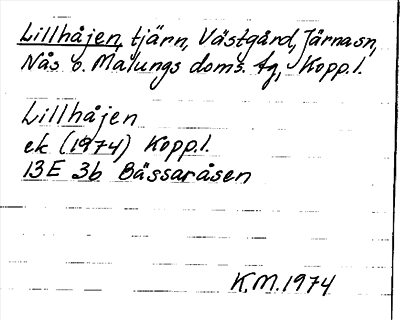 Lillhåjen, tjärn, Västgård, Järnasn,
Nås o. Malungs doms. tg, Kopp.l.
Lillhåjen
ek (1974) Kopp.l.
13E 3b Bässaråsen
K.M.1974